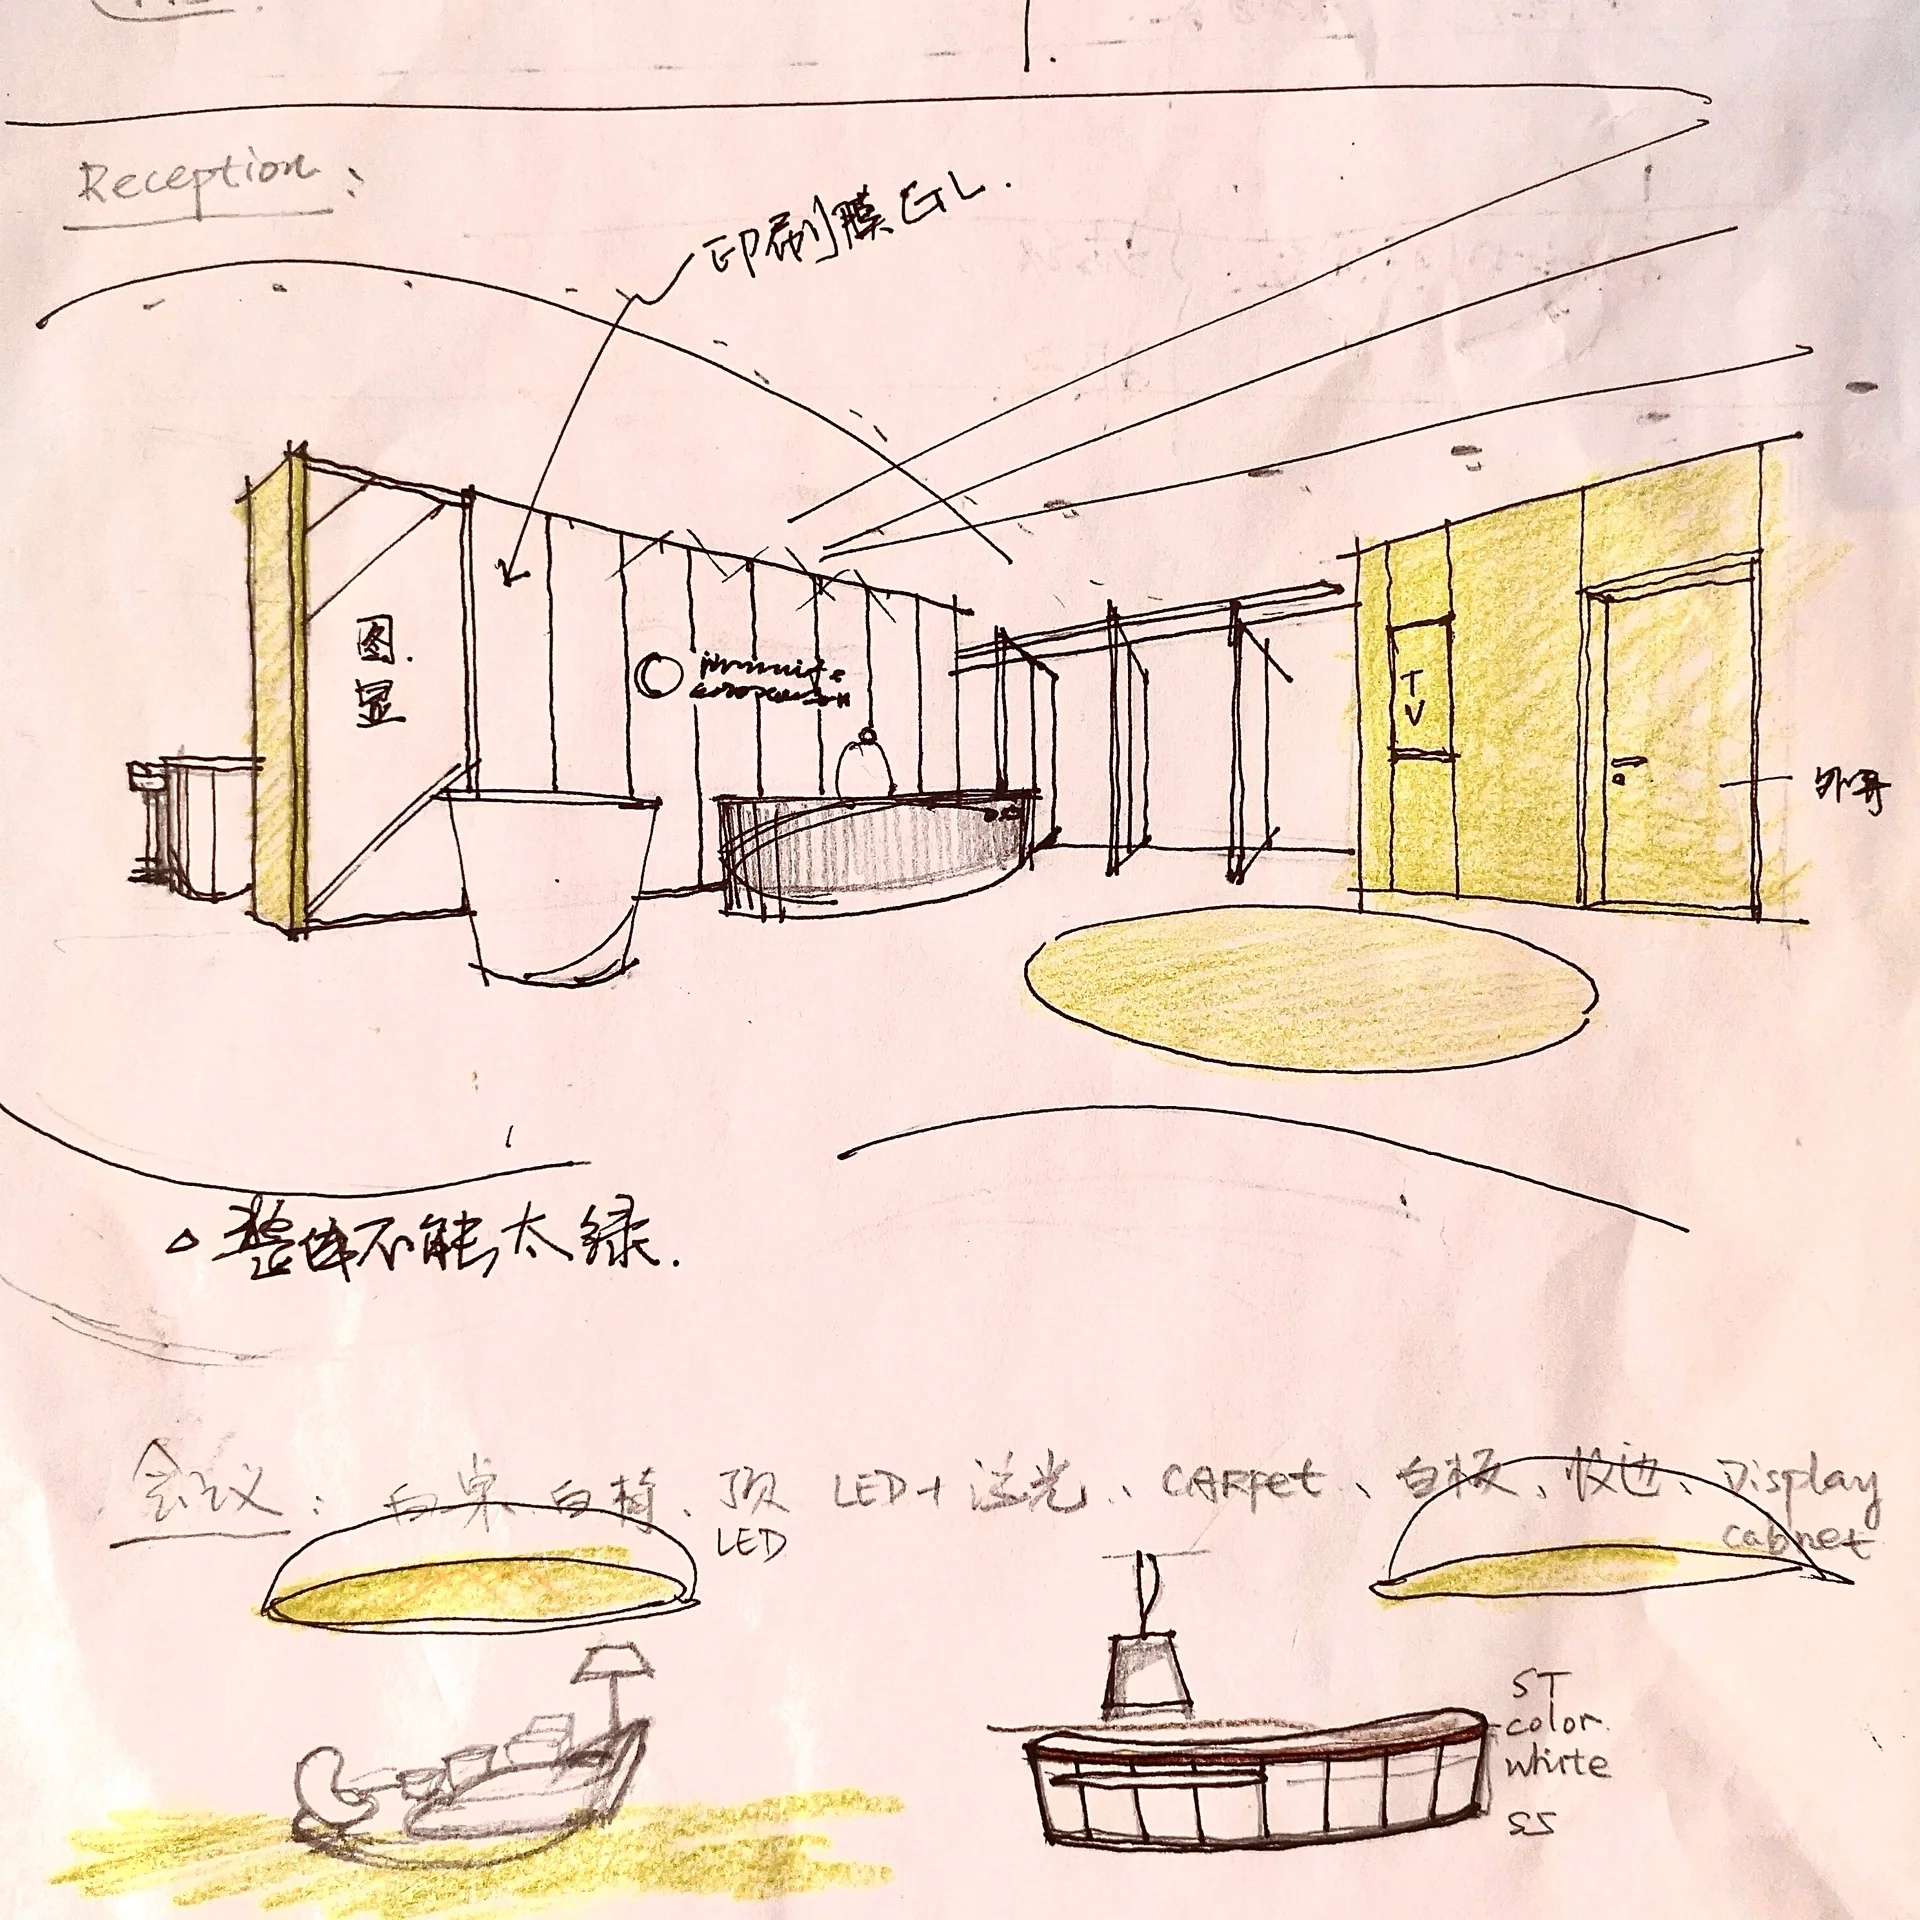 Reception:
印刷膜GL.
图.
显
TV
外开
△ 整体不能太绿.
会议: 白桌、白椅、顶 LED+泛光、CARPet、白板、收边、Display
LED
cabnet
ST
color.
white
SS